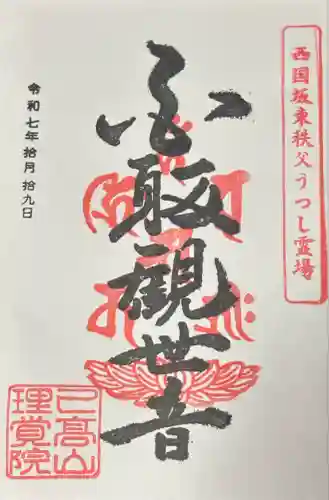 西国坂東秩父うつし霊場
觀世音
令和七年拾月拾九日
髙山
理覚院